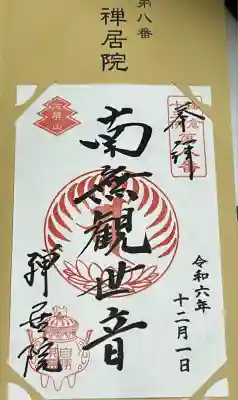 第八番
禅居院
奉拝
南無観世音
禅居院
令和六年
十二月一日